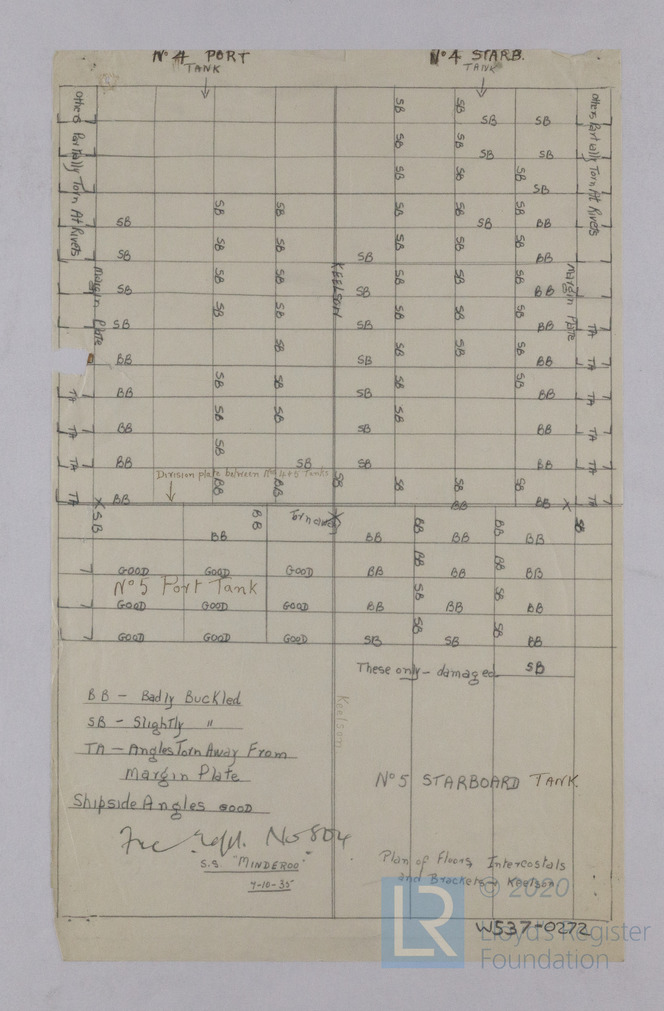 Nº 4 PORT
TANK
Nº 4 STARB.
TANK
Others Partially Torn At Rivets
Others Partially Torn At Rivets
SB SB
SB SB
SB SB
SB SB
SB SB SB SB SB
SB SB SB SB SB SB BB
SB SB SB SB SB SB SB BB
SB SB SB SB SB SB SB BB
Margin Plate
KEELSON
Margin Plate
SB SB SB SB SB SB SB BB TA
BB SB SB SB SB SB BB TA
TA BB SB SB SB SB SB BB TA
TA BB SB SB SB SB BB TA
TA BB SB SB SB BB TA
Division plate between Nos 4 & 5 Tanks
TA BB BB BB SB SB SB SB BB BB TA
X SB BB BB Torn away X BB BB BB BB BB X SB
GOOD GOOD GOOD BB BB BB BB
Nº 5 Port Tank
GOOD GOOD GOOD BB SB BB SB BB
GOOD GOOD GOOD SB SB SB SB BB
These only - damaged SB
BB - Badly Buckled
SB - Slightly "
TA - Angles Torn Away From
Margin Plate
Shipside Angles GOOD
Keelson
Nº 5 STARBOARD TANK.
Repl. No 804
S.S. "MINDEROO"
7-10-35
Plan of Floors, Intercostals
and Brackets & Keelson
LR
© 2020
Lloyd's Register
Foundation
W537-0272